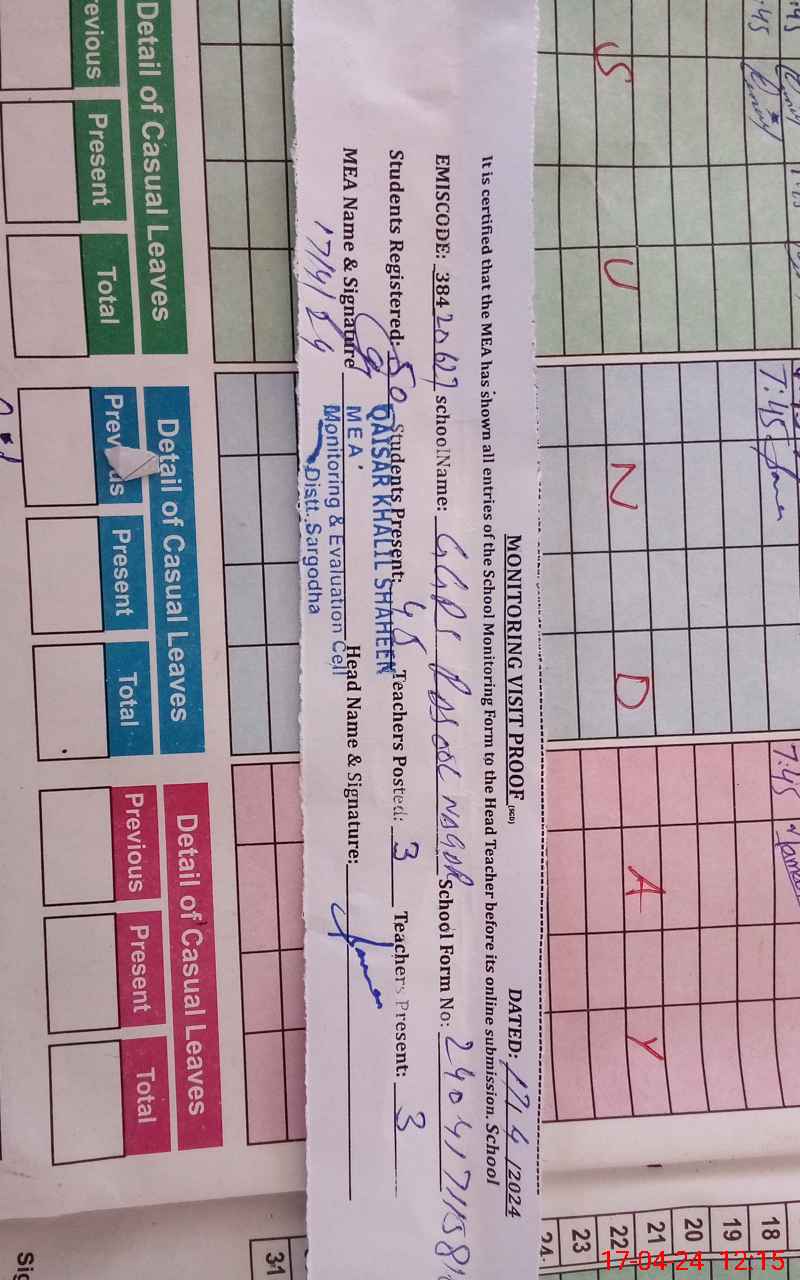 MONITORING VISIT PROOF (SGD) DATED: 17/4/2024
It is certified that the MEA has shown all entries of the School Monitoring Form to the Head Teacher before its online submission. School
EMISCODE: 38420627 schoolName: GGPS Rasool Nagar School Form No:
Students Registered: 50 Students Present: 45 Teachers Posted: 3 Teachers Present: 3
MEA Name & Signature Head Name & Signature:
17/4/24
QAISAR KHALIL SHAHEEN
MEA
Monitoring & Evaluation Cell
Distt. Sargodha
7:45 7:45
18
19
20
21
S U N D A Y
22
23
24
31
Detail of Casual Leaves Detail of Casual Leaves Detail of Casual Leaves
Present Total Present Total Previous Present Total
17-04-24 12:15